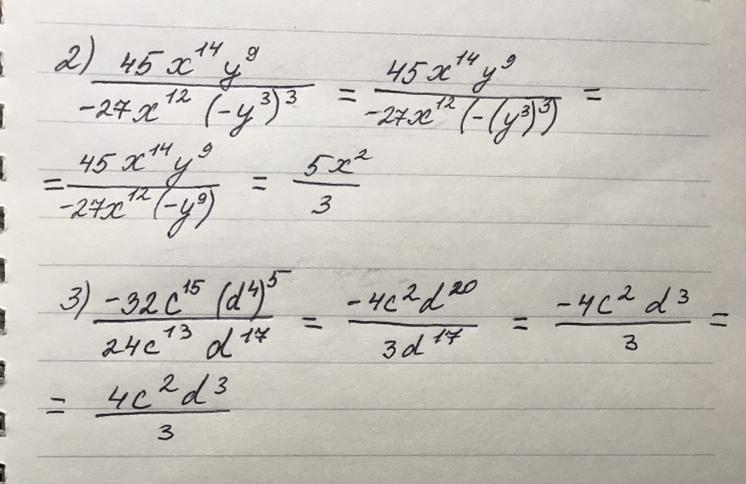 2) 45x^14y^9 / -27x^12 (-y^3)^3 = 45x^14y^9 / -27x^12 (-(y^3)^3) =
= 45x^14y^9 / -27x^12 (-y^9) = 5x^2 / 3
3) -32c^15 (d^4)^5 / 24c^13 d^17 = -4c^2d^20 / 3d^17 = -4c^2 d^3 / 3 =
= 4c^2d^3 / 3